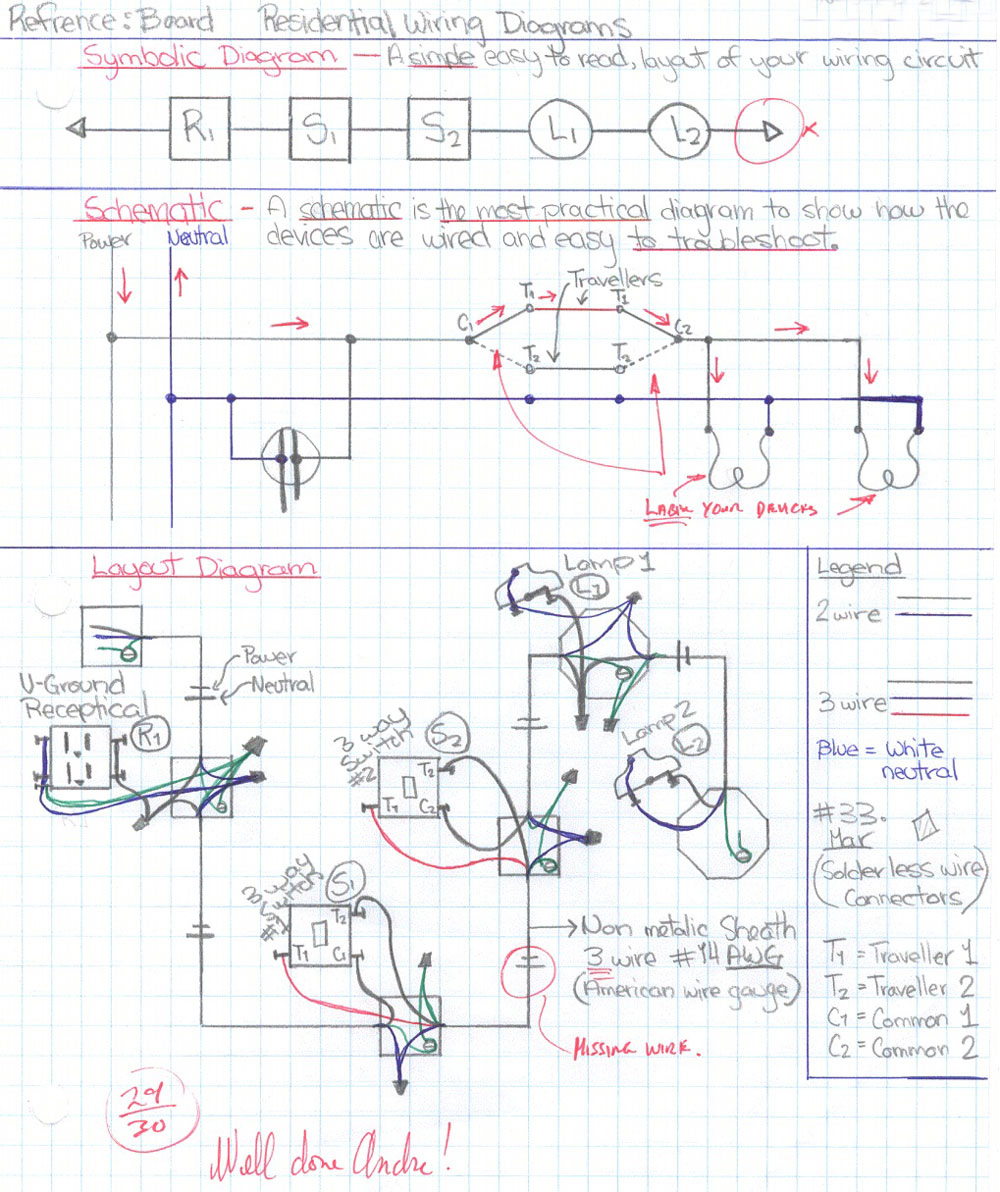 Refrence: Board Residential Wiring Diagrams
Symbolic Diagram — A simple easy to read, layout of your wiring circuit
R1 S1 S2 L1 L2 x
Schematic - A schematic is the most practical diagram to show how the
devices are wired and easy to troubleshoot.
Power Neutral
Travellers
T1 T1
C1 C2
T2 T2
LABEL YOUR DEVICES
Layout Diagram
Power
Neutral
U-Ground
Receptical
R1
3 way
Switch
#2
S2
T2
T1 C2
3 way
Switch
#1
S1
T2
T1 C1
Lamp 1
L1
Lamp 2
L2
Non metalic Sheath
3 wire #14 AWG
(American wire gauge)
MISSING WIRE.
Legend
2 wire
3 wire
Blue = white
neutral
#33.
Mar
(Solderless wire
Connectors)
T1 = Traveller 1
T2 = Traveller 2
C1 = Common 1
C2 = Common 2
29
30
Well done Andre!